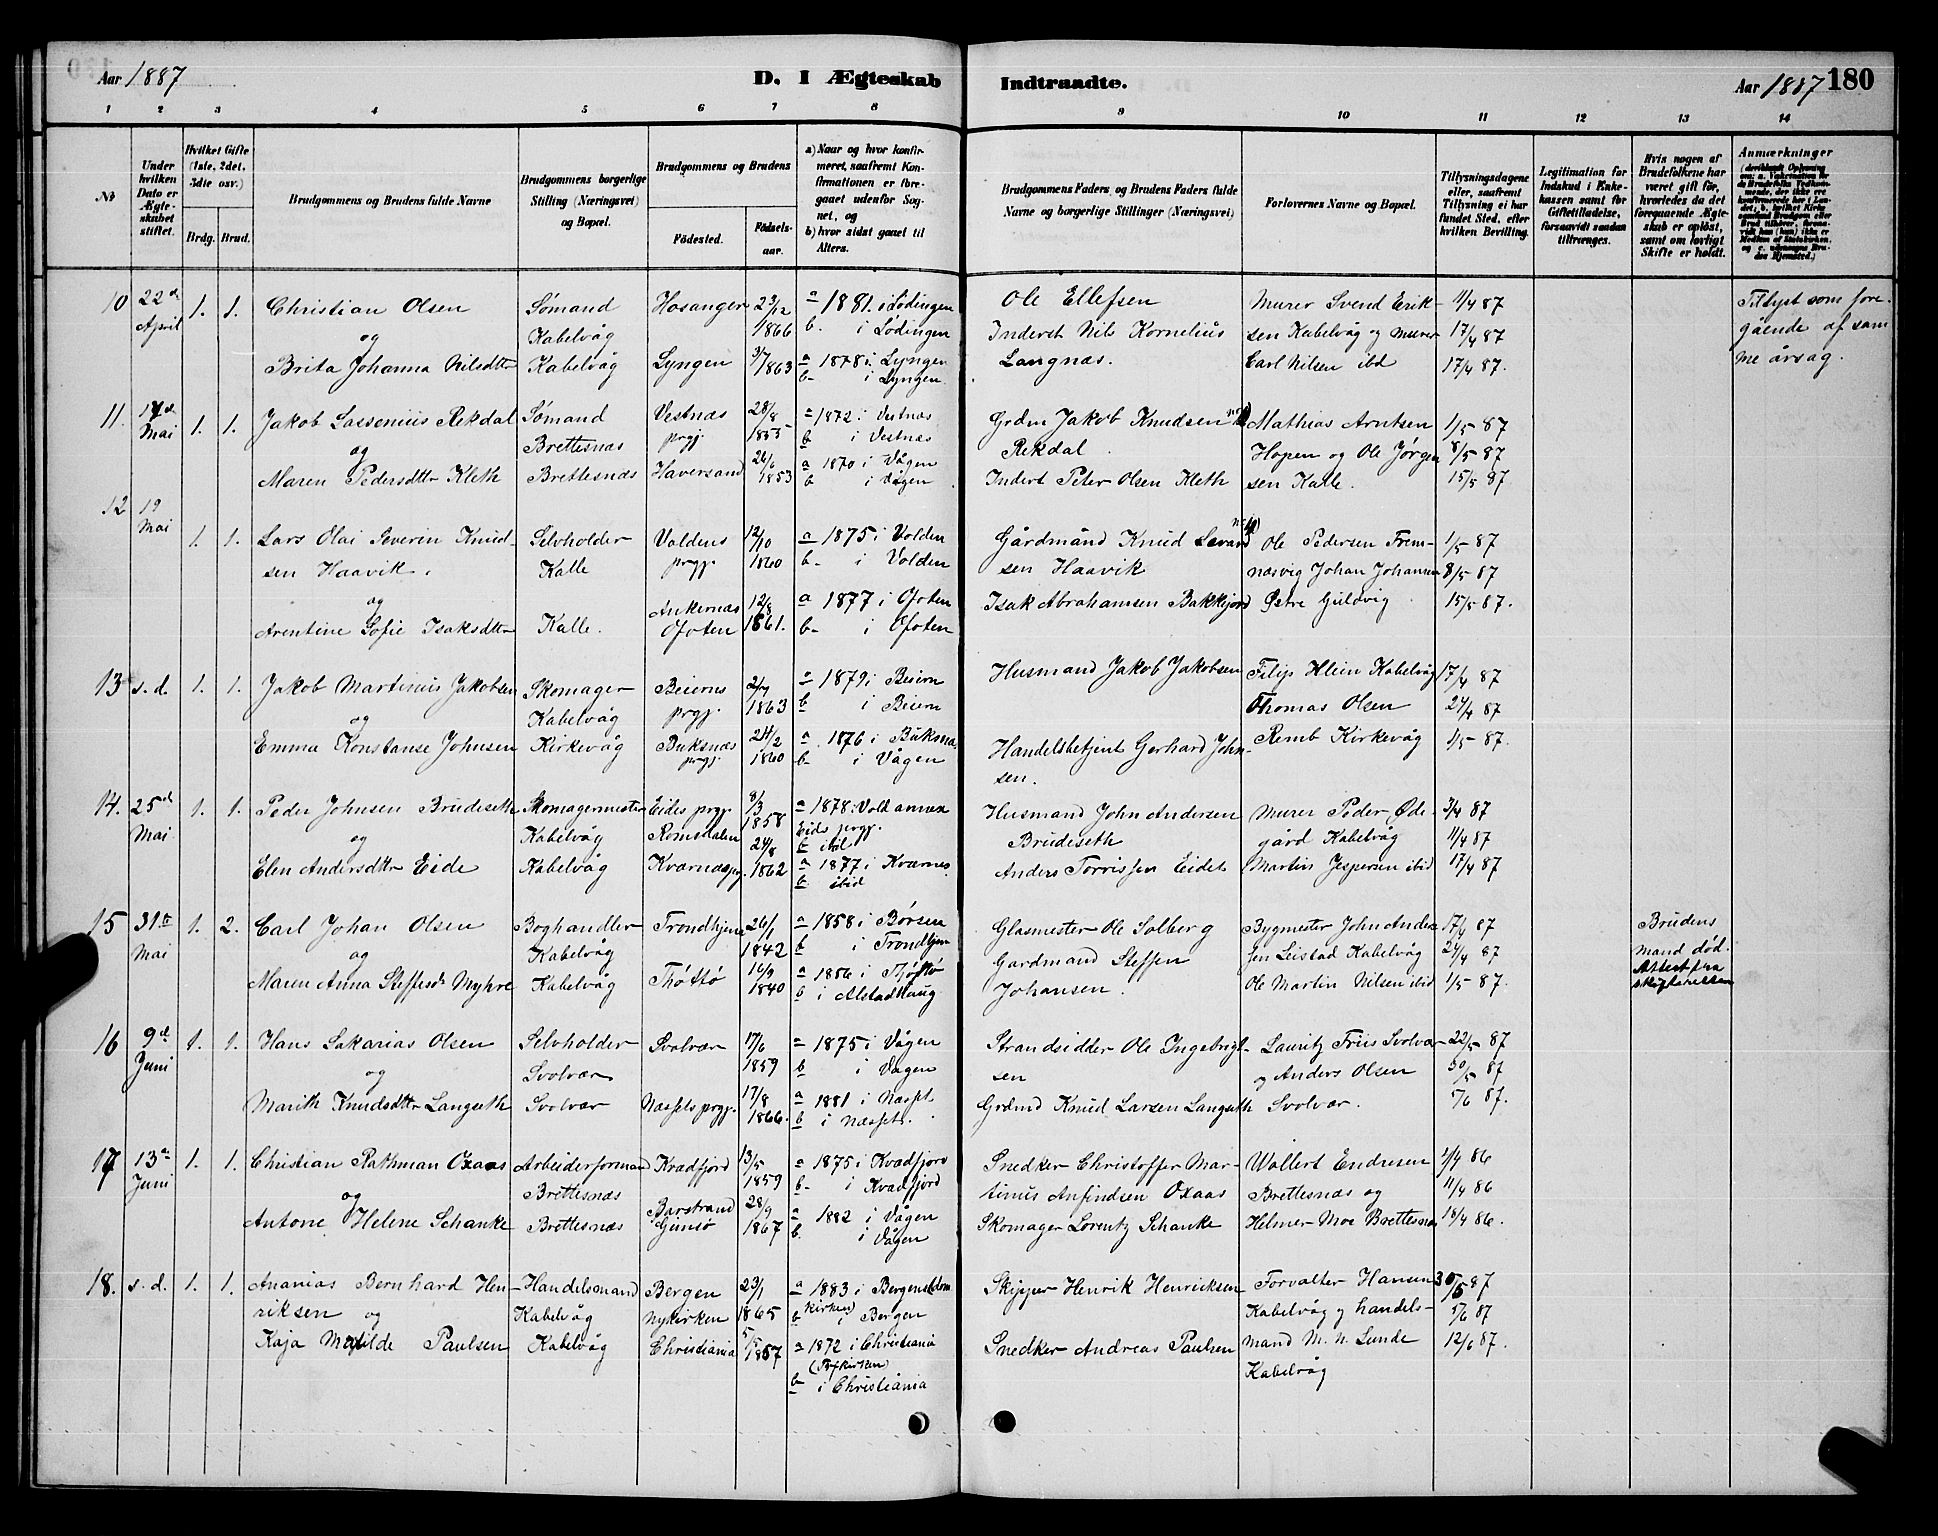 Aar 1887
D. I Ægteskab Indtraadte.
Aar 1887 180
1 2 3 4 5 6 7 8 9 10 11 12 13 14
No
Under hvilken Dato er Ægteskabet stiftet.
Hvilket Gifte (1ste, 2det, 3die osv.)
Brdg. Brud.
Brudgommens og Brudens fulde Navne
Brudgommens borgerlige Stilling (Næringsvei) og Bopæl.
Brudgommens og Brudens
Fødested.
Fødselsaar.
a) Naar og hvor konfirmeret, saafremt Konfirmationen er foregaaet udenfor Sognet, og
b) hvor sidst gaaet til Alters.
Brudgommens Faders og Brudens Faders fulde Navne og borgerlige Stillinger (Næringsvei)
Forlovernes Navne og Bopæl.
Tillysningsdagene eller, saafremt Tillysning ei har fundet Sted, efter hvilken Bevilling.
Legitimation for Indskud i Enkekassen samt for Giftetilladelse, forsaavidt saadan tiltrænges.
Hvis nogen af Brudefolkene har været gift før, hvorledes da det foregaaende Ægteskab er opløst, samt om lovligt Skifte er holdt.
Anmærkninger
10 22de April 1. 1.
Christian Olsen
og
Brita Johanna Nilsdttr
Sømand
Kabelvåg
Kabelvåg
Hosanger
Lyngen
23/12 1866
3/7 1863
a 1881 i Lødingen
b. i Lødingen
a 1878 i Lyngen
b i Lyngen
Ole Ellefsen
Inderst Nils Kornelius
Langnæs.
Murer Svend Erik-
sen Kabelvåg og murer
Carl Nilsen ibd
11/4 87
17/4 87
17/4 87.
Tillyst som fore-
gående af sam
me årsag.
11. Mai 1. 1.
Jakob Lassenius Rekdal
og
Maren Pedersdttr Kleth
Sømand
Brettesnæs
Brettesnæs
Vestnæs
prgj.
Haversand
28/8 1855
1853
a 1872 i Vestnæs
b i Vestnæs
a 1870 i Vågen
b i Vågen
Grdm Jakob Knudsen
Rekdal
Inderst Peter Olsen Kleth
Mathias Arntsen
Hopen og Ole Jørgen
sen Kalle.
1/5 87
8/5 87
15/5 87
12 19 Mai 1. 1.
Lars Olai Severin Knud-
sen Haavik.
og
Arentine Sofie Isaksdttr
Selvholder
Kalle
Kalle.
Voldens
prgj.
Ankernæs
Ofoten
12/10 1860
12/8 1861.
a 1875 i Volden
b. i Volden
a 1877 i Ofoten
b. i Ofoten
Gårdmand Knud
sen Haavik
Isak Abrahamsen Bakkejord
Ole Pedersen Frem-
næsvig Johan Johansen
Østre Guldvig
1/5 87
8/5 87
15/5 87.
13 s.d. 1. 1.
Jakob Martinus Jakobsen
og
Emma Konstanse Johnsen
Skomager
Kabelvåg
Kirkevåg
Beierns
prgj.
Buksnæs
prgj.
1863
24/2 1860
a 1879 i Beiern
b i Beiern
a 1876 i Buksnæs
b i Vågen
Husmand Jakob Jakobsen
Handelsbetjent Gerhard John-
sen.
Filip Klein Kabelvåg
Thomas Olsen
Remb Kirkevåg
17/4 87
24/4 87
1/5 87.
14. 25de Mai 1. 1.
Peder Johnsen Brudeseth
og
Elen Andersdttr Eide
Skomagermester
Kabelvåg
Kabelvåg
Eides prgj.
Romsdalen
Kvernæs prgj.
8/3 1858
24/8 1862
a 1878 i Vold annex
Eids prgj.
b ibid
a 1877 i Kvernes
b ibid
Husmand John Andersen
Brudeseth
Anders Torrissen Eidet
Murer Peder Øde-
gård Kabelvåg
Martin Jespersen ibid
3/4 87
11/4 87
17/4 87
15 31te Mai 1. 2.
Carl Johan Olsen
og
Maren Anna Steffensdr Myhre
Boghandler
Kabelvåg
Kabelvåg
Trondhjem
Thøttø
26/1 1842
16/9 1840
a 1858 i Børsen
b i Trondhjem
a 1856 i Thøttø
b i Alstadhaug
Glasmester Ole Solberg
Gardmand Steffen
Johansen.
Bygmester John Ander
sen Leistad Kabelvåg
Ole Martin Nilsen ibid
17/4 87
24/4 87
1/5 87.
Brudens
mand død.
Attest fra
skifteretten
16 9de Juni 1. 1.
Hans Sakarias Olsen
og
Marith Knudsdttr Langseth
Selvholder
Svolvær
Svolvær
Svolvær
Næssets prgj.
17/6 1859
17/8 1866.
a 1875 i Vågen
b i Vågen
a 1881 i Næsset
b i Næsset.
Strandsidder Ole Ingebrigt-
sen
Grdmd Knud Larsen Langseth
Lauritz Friis Svolvær
og Anders Olsen
Svolvær.
22/5 87
30/5 87
5/6 87.
17 13de Juni 1. 1.
Christian Rathman Oxaas
og
Antone Helene Schanke
Arbeiderformand
Brettesnæs
Brettesnæs
Kvædfjord
Barstrand
Gimsø
13/5 1859
28/9 1867
a 1875 i Kvædfjord
b. i Kvædfjord
a 1882 i Vågen
b. i Vågen
Snedker Christoffer Mar-
tinus Anfindsen Oxaas
Skomager Lorentz Schanke
Wollert Endresen
Brettesnæs og
Helmer Moe Brettesnæs
1/4 86
11/4 86
18/4 86.
18. s.d. 1. 1.
Ananias Bernhard Hen-
riksen og
Kaja Matilde Paulsen
Handelsmand
Kabelvåg
Kabelvåg
Bergen
Nykirken
Christiania
23/1 1865
5/5 1857
a 1883 i Bergens (dom
kirken)
b i Bergen
a 1872 i Christiania
b i Christiania
Skipper Henrik Henriksen
Snedker Andreas Paulsen
Forvalter Hansen
Kabelvåg og handels-
mand M. N. Lunde
Kabelvåg
30/5 87
5/6 87
12/6 87.